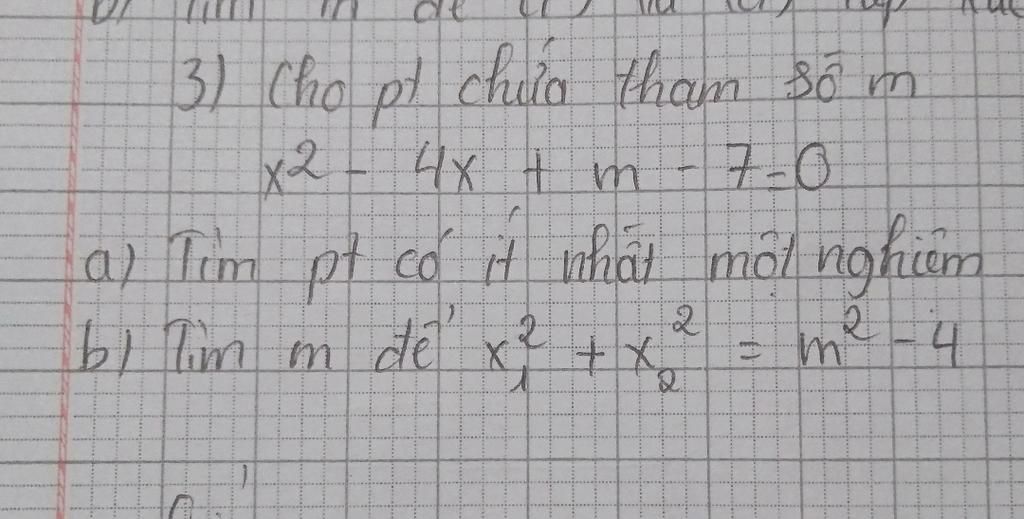 b) Tìm m để (P)
3) Cho pt chứa tham số m
x² - 4x + m - 7 = 0
a) Tìm pt có ít nhất một nghiêm
b) Tìm m để x₁² + x₂² = m² - 4